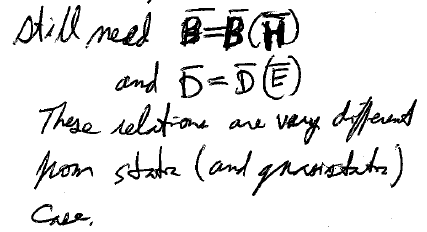 still need B̅=B̅(H̅)
and D̅=D̅(E̅)
These relations are very different
from static (and quasistatic)
Case.